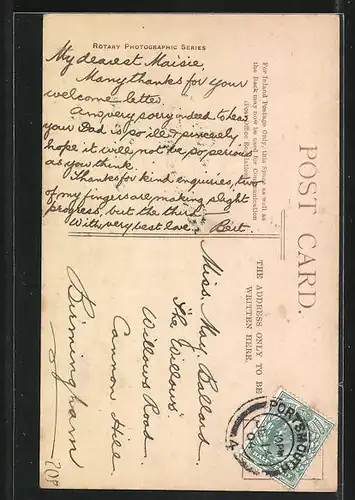 ROTARY PHOTOGRAPHIC SERIES
My dearest Maisie,
Many thanks for your
welcome letter.
Am very sorry indeed to hear
your Dad is so ill & sincerely
hope it will not be so serious
as you think.
Thanks for kind enquiries, two
of my fingers are making slight
progress, but the third
With very best love.
For Inland Postage Only, this Space, as well as
the Back may now be used for Communication
(Post Office Regulation).
POST CARD.
THE ADDRESS ONLY TO BE
WRITTEN HERE.
Miss. May Ballard.
"The Willows"
Willows Road.
Cannon Hill
Birmingham
PORTSMOUTH
4